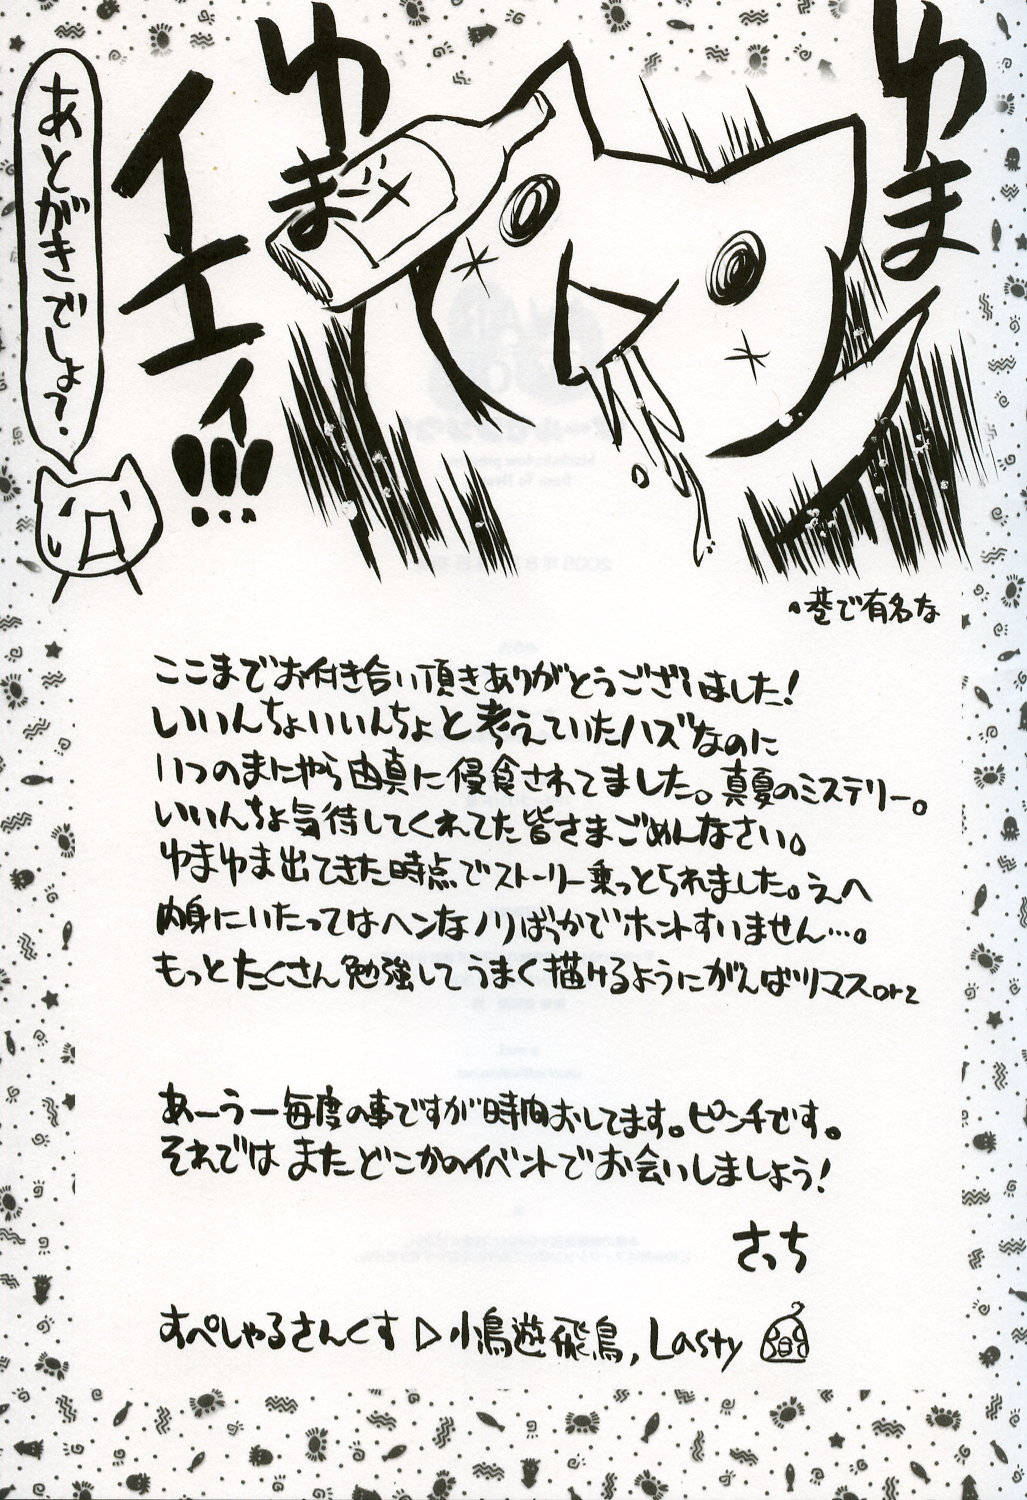 ゆま
ゆま
イエィ!!!
あとがきでしょ?
・巷で有名な
ここまでお付き合い頂きありがとうございました!
いいんちょいいんちょと考えていたハズなのに
いつのまにやら由真に侵食されてました。真夏のミステリー。
いいんちょ気待してくれてた皆さまごめんなさい。
ゆまゆま出てきた時点でストーリー乗っとられました。えへ
内身にいたってはヘンなノリばっかでホントすいません…。
もっとたくさん勉強してうまく描けるようにがんばツマスorz
あーうー毎度の事ですが時間おしてます。ピンチです。
それではまたどこかのイベントでお会いしましょう!
さっち
すぺしゃるさんくす▷小鳥遊飛鳥, Lasty